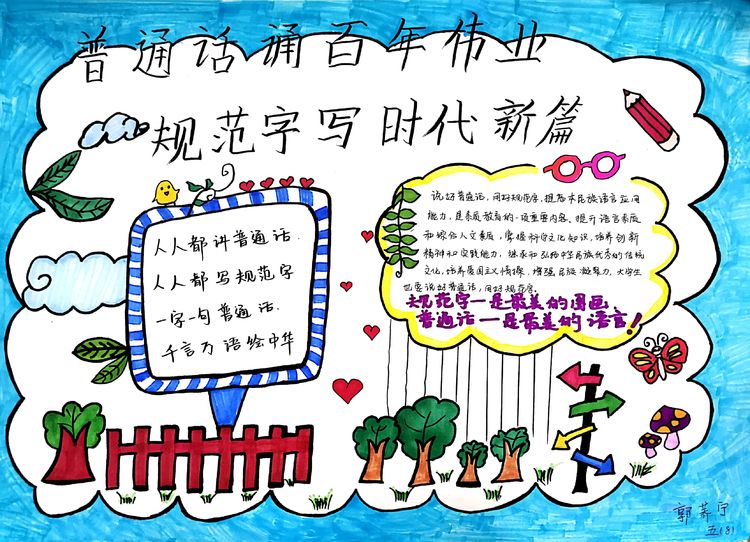 普通话诵百年伟业
规范字写时代新篇
人人都讲普通话.
人人都写规范字
一字一句普通话.
千言万语绘中华
说好普通话，用好规范字，提高本民族语言应用
能力，是素质教育的一项重要内容。提升语言素质
和综合人文素质，掌握科学文化知识，培养创新
精神和实践能力，继承和弘扬中华民族优秀的传统
文化，培养爱国主义情操，增强民族凝聚力，大学生
也要说好普通话，用好规范字。
规范字—是最美的图画
普通话—是最美的语言！
五(8)